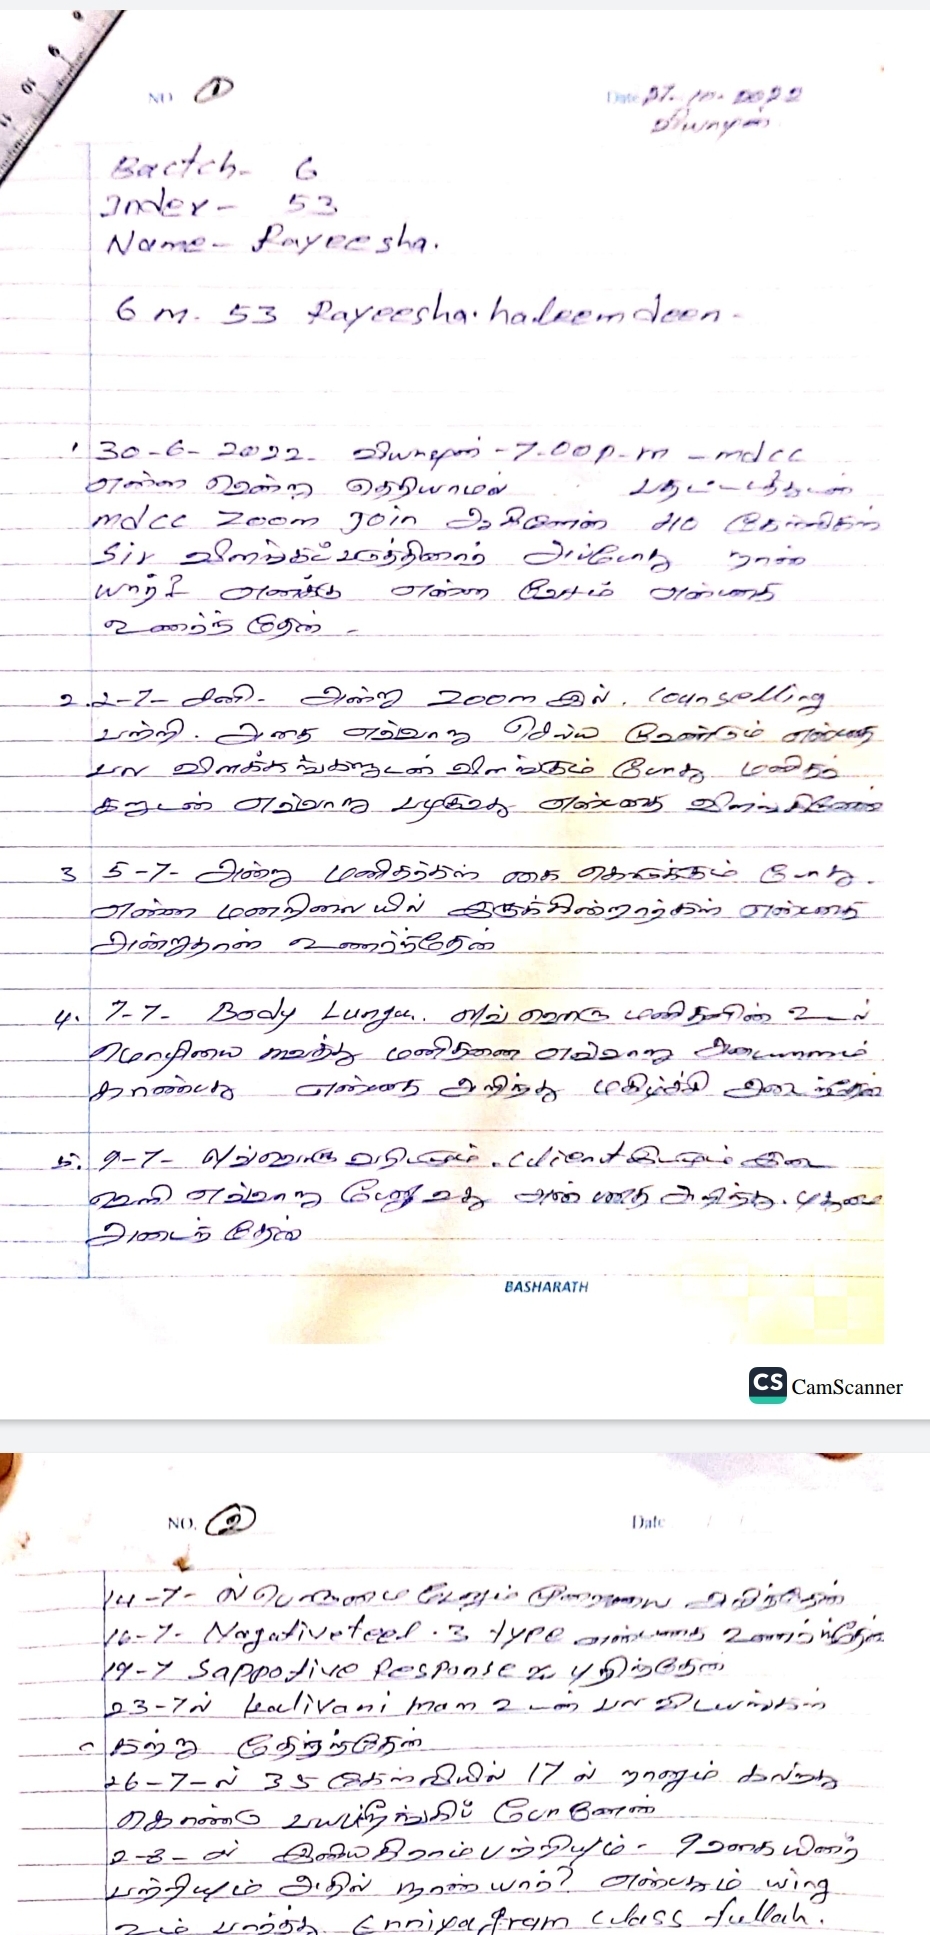 NO ①
Date 27-10-2022
வியாழன்
Bactch- 6
Index - 53
Name - Rayeesha.
6 m. 53 Rayeesha.haleemdeen -
1 30-6-2022. வியாழன் -7.00p.m - mdcc
என்ன வென்று தெரியாமல் பதட்டத்துடன்
mdcc Zoom join ஆகினேன் கேள்விகள்
Sir விளங்கப்படுத்தினார் அப்போது நான்
யார்? எனக்கு என்ன என்பதை
உணர்ந்தேன் -
2. 2-7- சனி - அன்று Zoom இல். Counselling
பற்றி. அதை எவ்வாறு செய்ய வேண்டும் என்பதை
பல விளக்கங்களுடன் விளங்கும் போது மனிதர்
களுடன் எவ்வாறு பழகுவது என்பதை விளங்கினேன்
3 5-7- அன்று மனிதர்கள் கை கொடுக்கும் போது.
என்ன மனநிலையில் இருக்கின்றார்கள் என்பதை
அன்றுதான் உணர்ந்தேன்
4. 7-7- Body Lungu. ஒவ்வொரு மனிதனின் உடல்
மொழியை வைத்து மனிதனை எவ்வாறு அடையாளம்
காண்பது என்பதை அறிந்து மகிழ்ச்சி அடைந்தேன்
5. 9-7- client இடமும் இடை
வெளி எவ்வாறு பேணுவது என்பதை அறிந்து. புதுமை
அடைந்தேன்
BASHARATH
CS CamScanner
NO. ②
Date
14-7- ல் பேணும் முறையை அறிந்தேன்
16-7- Nagativeteel. 3 type என்பதை உணர்ந்தேன்
19-7 Sappotive Response ஐ புரிந்தேன்
23-7ல் kalivani mam உடன் பல விடயங்கள்
கற்று தேர்ந்தேன்
26-7-ல் 35 கேள்வியில் 17 ல் நானும் கலந்து
கொண்டு பயனடைந்து போனேன்
2-8-ல் இனியகிராம் பற்றியும் - 9 வகையினர்
பற்றியும் அதில் நான் யார்? என்பதும் wing
உம் பார்த்து Enniyagram class fullah.